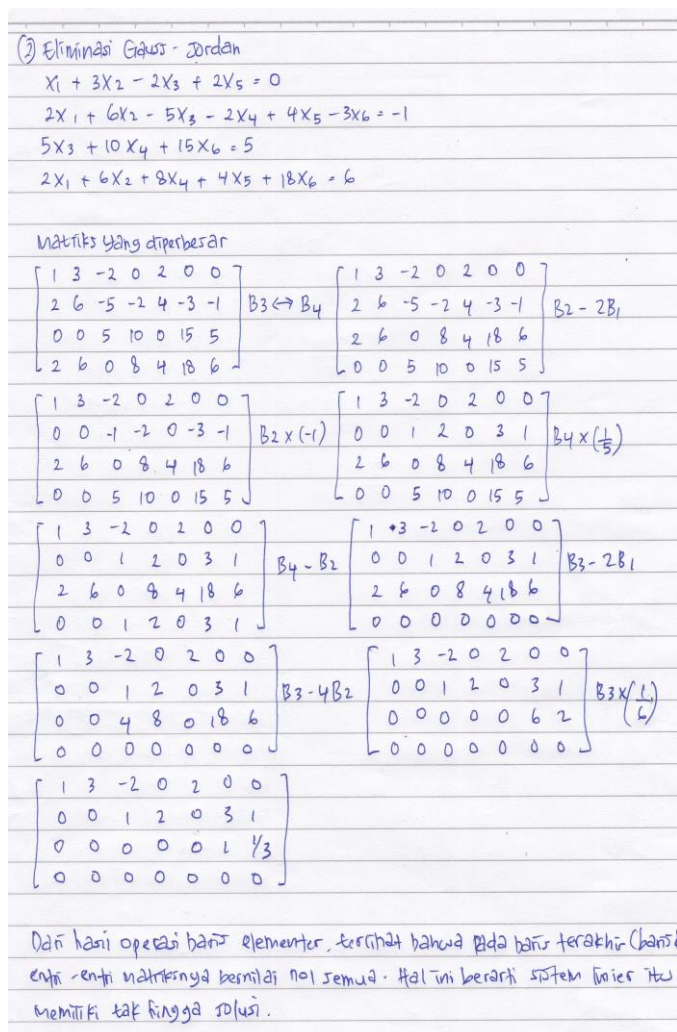 ② Eliminasi Gauss - Jordan
X1 + 3X2 - 2X3 + 2X5 = 0
2X1 + 6X2 - 5X3 - 2X4 + 4X5 - 3X6 = -1
5X3 + 10X4 + 15X6 = 5
2X1 + 6X2 + 8X4 + 4X5 + 18X6 = 6
Matriks yang diperbesar
1 3 -2 0 2 0 0
2 6 -5 -2 4 -3 -1 B3 ↔ B4
0 0 5 10 0 15 5
2 6 0 8 4 18 6
1 3 -2 0 2 0 0
2 6 -5 -2 4 -3 -1 B2 - 2B1
2 6 0 8 4 18 6
0 0 5 10 0 15 5
1 3 -2 0 2 0 0
0 0 -1 -2 0 -3 -1 B2 x (-1)
2 6 0 8 4 18 6
0 0 5 10 0 15 5
1 3 -2 0 2 0 0
0 0 1 2 0 3 1 B4 x (1/5)
2 6 0 8 4 18 6
0 0 5 10 0 15 5
1 3 -2 0 2 0 0
0 0 1 2 0 3 1 B4 - B2
2 6 0 8 4 18 6
0 0 1 2 0 3 1
1 3 -2 0 2 0 0
0 0 1 2 0 3 1 B3 - 2B1
2 6 0 8 4 18 6
0 0 0 0 0 0 0
1 3 -2 0 2 0 0
0 0 1 2 0 3 1 B3 - 4B2
0 0 4 8 0 18 6
0 0 0 0 0 0 0
1 3 -2 0 2 0 0
0 0 1 2 0 3 1 B3 x (1/6)
0 0 0 0 0 6 2
0 0 0 0 0 0 0
1 3 -2 0 2 0 0
0 0 1 2 0 3 1
0 0 0 0 0 1 1/3
0 0 0 0 0 0 0
Dari hasil operasi baris elementer, terlihat bahwa pada baris terakhir (baris
entri-entri matriksnya bernilai nol semua. Hal ini berarti sistem linier itu
memiliki tak hingga solusi.